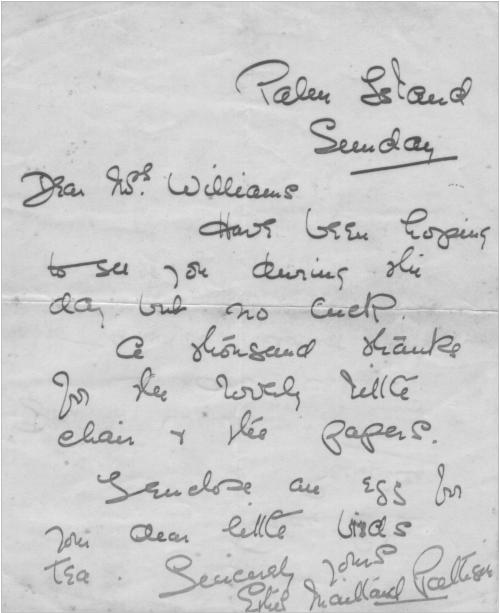 Palm Island
Sunday
Dear Mrs. Williams
Have been hoping
to see you during the
day but no luck.
A thousand thanks
for the lovely little
chair & the papers.
I enclose an egg for
your dear little birds
tea. Sincerely yours
Maitland Pattison